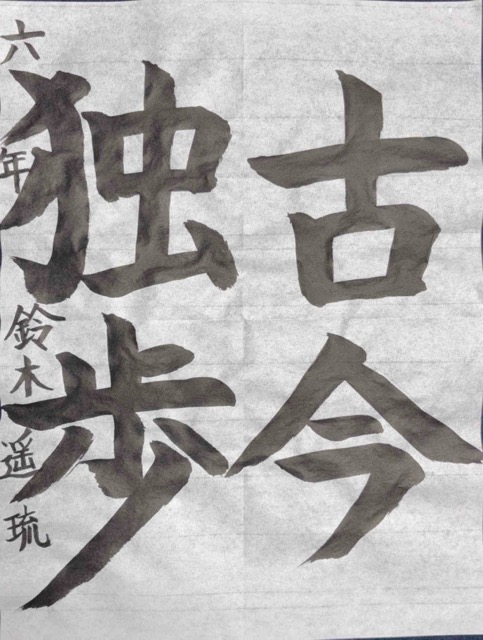 古今
独歩
六年 鈴木遥琉